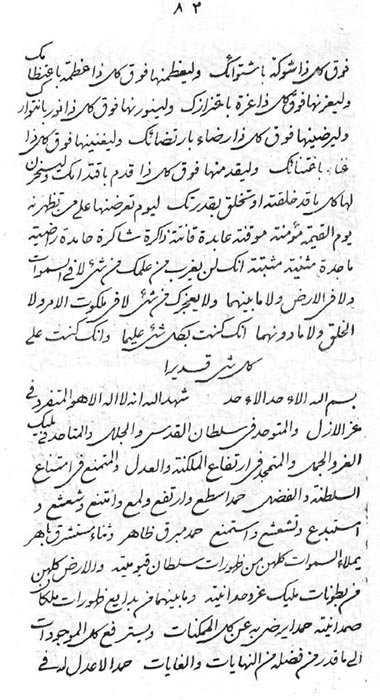 ٨٢
فوق كل ذا شوكة باشتواكك وليعظمنها فوق كل ذا عظمة باعتظامك
وليعزنها فوق كل ذا عزة باعتزازك ولينورنها فوق كل ذا نور بانتوارك
وليرضينها فوق كل ذا رضاء بارتضائك وليغنينها فوق كل ذا
غناء باغتنائك وليقدمنها فوق كل ذا قدم باقتدامك وليسخرن
لها كل ما قد خلقته او تخلق بقدرتك ليوم تعرضنها على من تظهرنه
يوم القيمة مؤمنة موقنة عابدة قانتة ذاكرة شاكرة حامدة راضية
ماجدة مثنية مثبتة انك لن يعزب من علمك من شئ لا في السموات
ولا في الارض ولا ما بينهما ولا يعجزك من شئ لا في ملكوت الامر ولا
الخلق ولا ما دونهما انك كنت بكل شئ عليما وانك كنت على
كل شئ قديرا
بسم الله الاوحد الاوحد شهد الله انه لا اله الا هو المتفرد في
عز الازل والمتوحد في سلطان القدس والجلال والمتاحد في مليك
العز والجمال والمتجلل في ارتفاع الملكية والعدل والمتمنع في امتناع
السلطنة والفضل حمدا سطع وارتفع ولمع وامتنع وشعشع و
استبدع وتشعشع واستمنع حمد مبرق ظاهر وثناء مستشرق باهر
يملاء السموات كلهن من ظهورات سلطان قيوميته والارض كلهن
من بطونات مليك عز وحدانيته وما بينهما من بدايع ظهورات ملكان
صمدانيته حمدا يرضى به عن كل الممكنات ويسترفع كل الموجودات
الى ما قدر من فضله من النهايات والغايات حمدا لا عدل له في